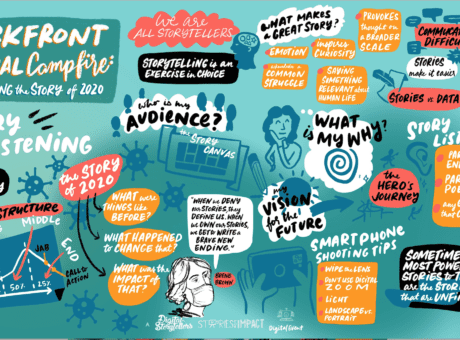 CKFRONT
AL Campfire:
NG THE STORY OF 2020
WE ARE
ALL STORYTELLERS
STORYTELLING IS AN
EXERCISE IN CHOICE
WHAT MAKES
A GREAT STORY?
EMOTION
inspires
CURIOSITY
COMMON
STRUGGLE
SAYING
SOMETHING
RELEVANT about
HUMAN LIFE
PROVOKES
thought on
A BROADER
SCALE
DIFFICU
STORIES
make it easier
STORIES vs DATA
RY
STENING
WHO is my
AUDIENCE?
the STORY
CANVAS
WHAT
iS MY WHY?
STORY
LIS
the
HERO'S
JOURNEY
the STORY
of 2020
STRUCTURE
MIDDLE
END
JAB
CALL to
ACTION
50%
25%
WHAT WERE
THINGS LIKE
BEFORE?
WHAT HAPPENED
to CHANGE that?
WHAT was the
IMPACT OF
THAT?
"WHEN WE DENY
our STORIES, they
DEFINE US. WHEN
WE OWN OUR STORIES,
WE GET to WRITE a
BRAVE NEW
ENDING."
BRENÉ
BROWN
my
VISION
FOR the
FUTURE
SMARTPHONE
SHOOTING TIPS
WIPE the LENS
DON'T USE DIGITAL
ZOOM
LIGHT
LANDSCAPE vs
PORTRAIT
SOMETIME
MOST POWER
STORIES
are the STORI
that are UNFI
Digital
Storytellers
STORIES IMPACT